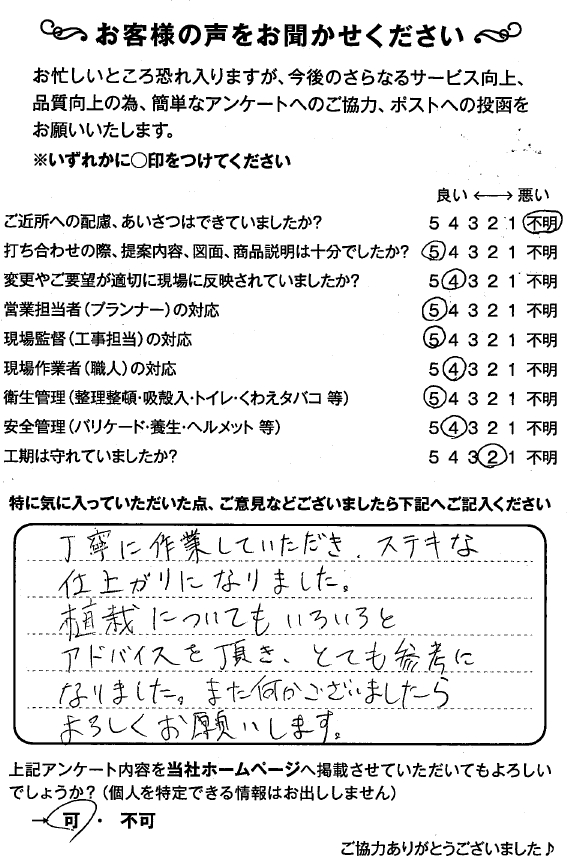 お客様の声をお聞かせください
お忙しいところ恐れ入りますが、今後のさらなるサービス向上、
品質向上の為、簡単なアンケートへのご協力、ポストへの投函を
お願いいたします。
※いずれかに○印をつけてください
良い ←→ 悪い
ご近所への配慮、あいさつはできていましたか? 5 4 3 2 1 不明
打ち合わせの際、提案内容、図面、商品説明は十分でしたか? 5 4 3 2 1 不明
変更やご要望が適切に現場に反映されていましたか? 5 4 3 2 1 不明
営業担当者(プランナー)の対応 5 4 3 2 1 不明
現場監督(工事担当)の対応 5 4 3 2 1 不明
現場作業者(職人)の対応 5 4 3 2 1 不明
衛生管理(整理整頓・吸殻入・トイレ・くわえタバコ 等) 5 4 3 2 1 不明
安全管理(バリケード・養生・ヘルメット 等) 5 4 3 2 1 不明
工期は守れていましたか? 5 4 3 2 1 不明
特に気に入っていただいた点、ご意見などございましたら下記へご記入ください
丁寧に作業していただき、ステキな
仕上がりになりました。
植栽についてもいろいろと
アドバイスを頂き、とても参考に
なりました。また何かございましたら
よろしくお願いします。
上記アンケート内容を当社ホームページへ掲載させていただいてもよろしい
でしょうか?(個人を特定できる情報はお出ししません)
→ 可 ・ 不可
ご協力ありがとうございました♪